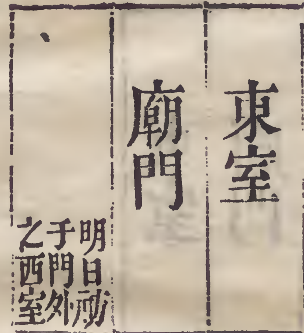 東室
廟門
明日祊
于門外
之西室